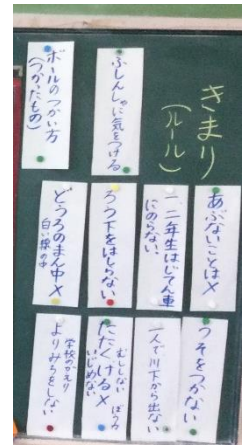 きまり
(ルール)
ふしんしゃに気をつける
ボールのつかい方
(つかったもの)
あぶないことは×
一二年生はじてん車
にのらない
ろう下をはしらない
どうろのまん中×
白い線の中
うそをつかない
一人で川下から出ない
むしない ぼう力
たたくける×
いじめない
学校のかえり
よりみちをしない